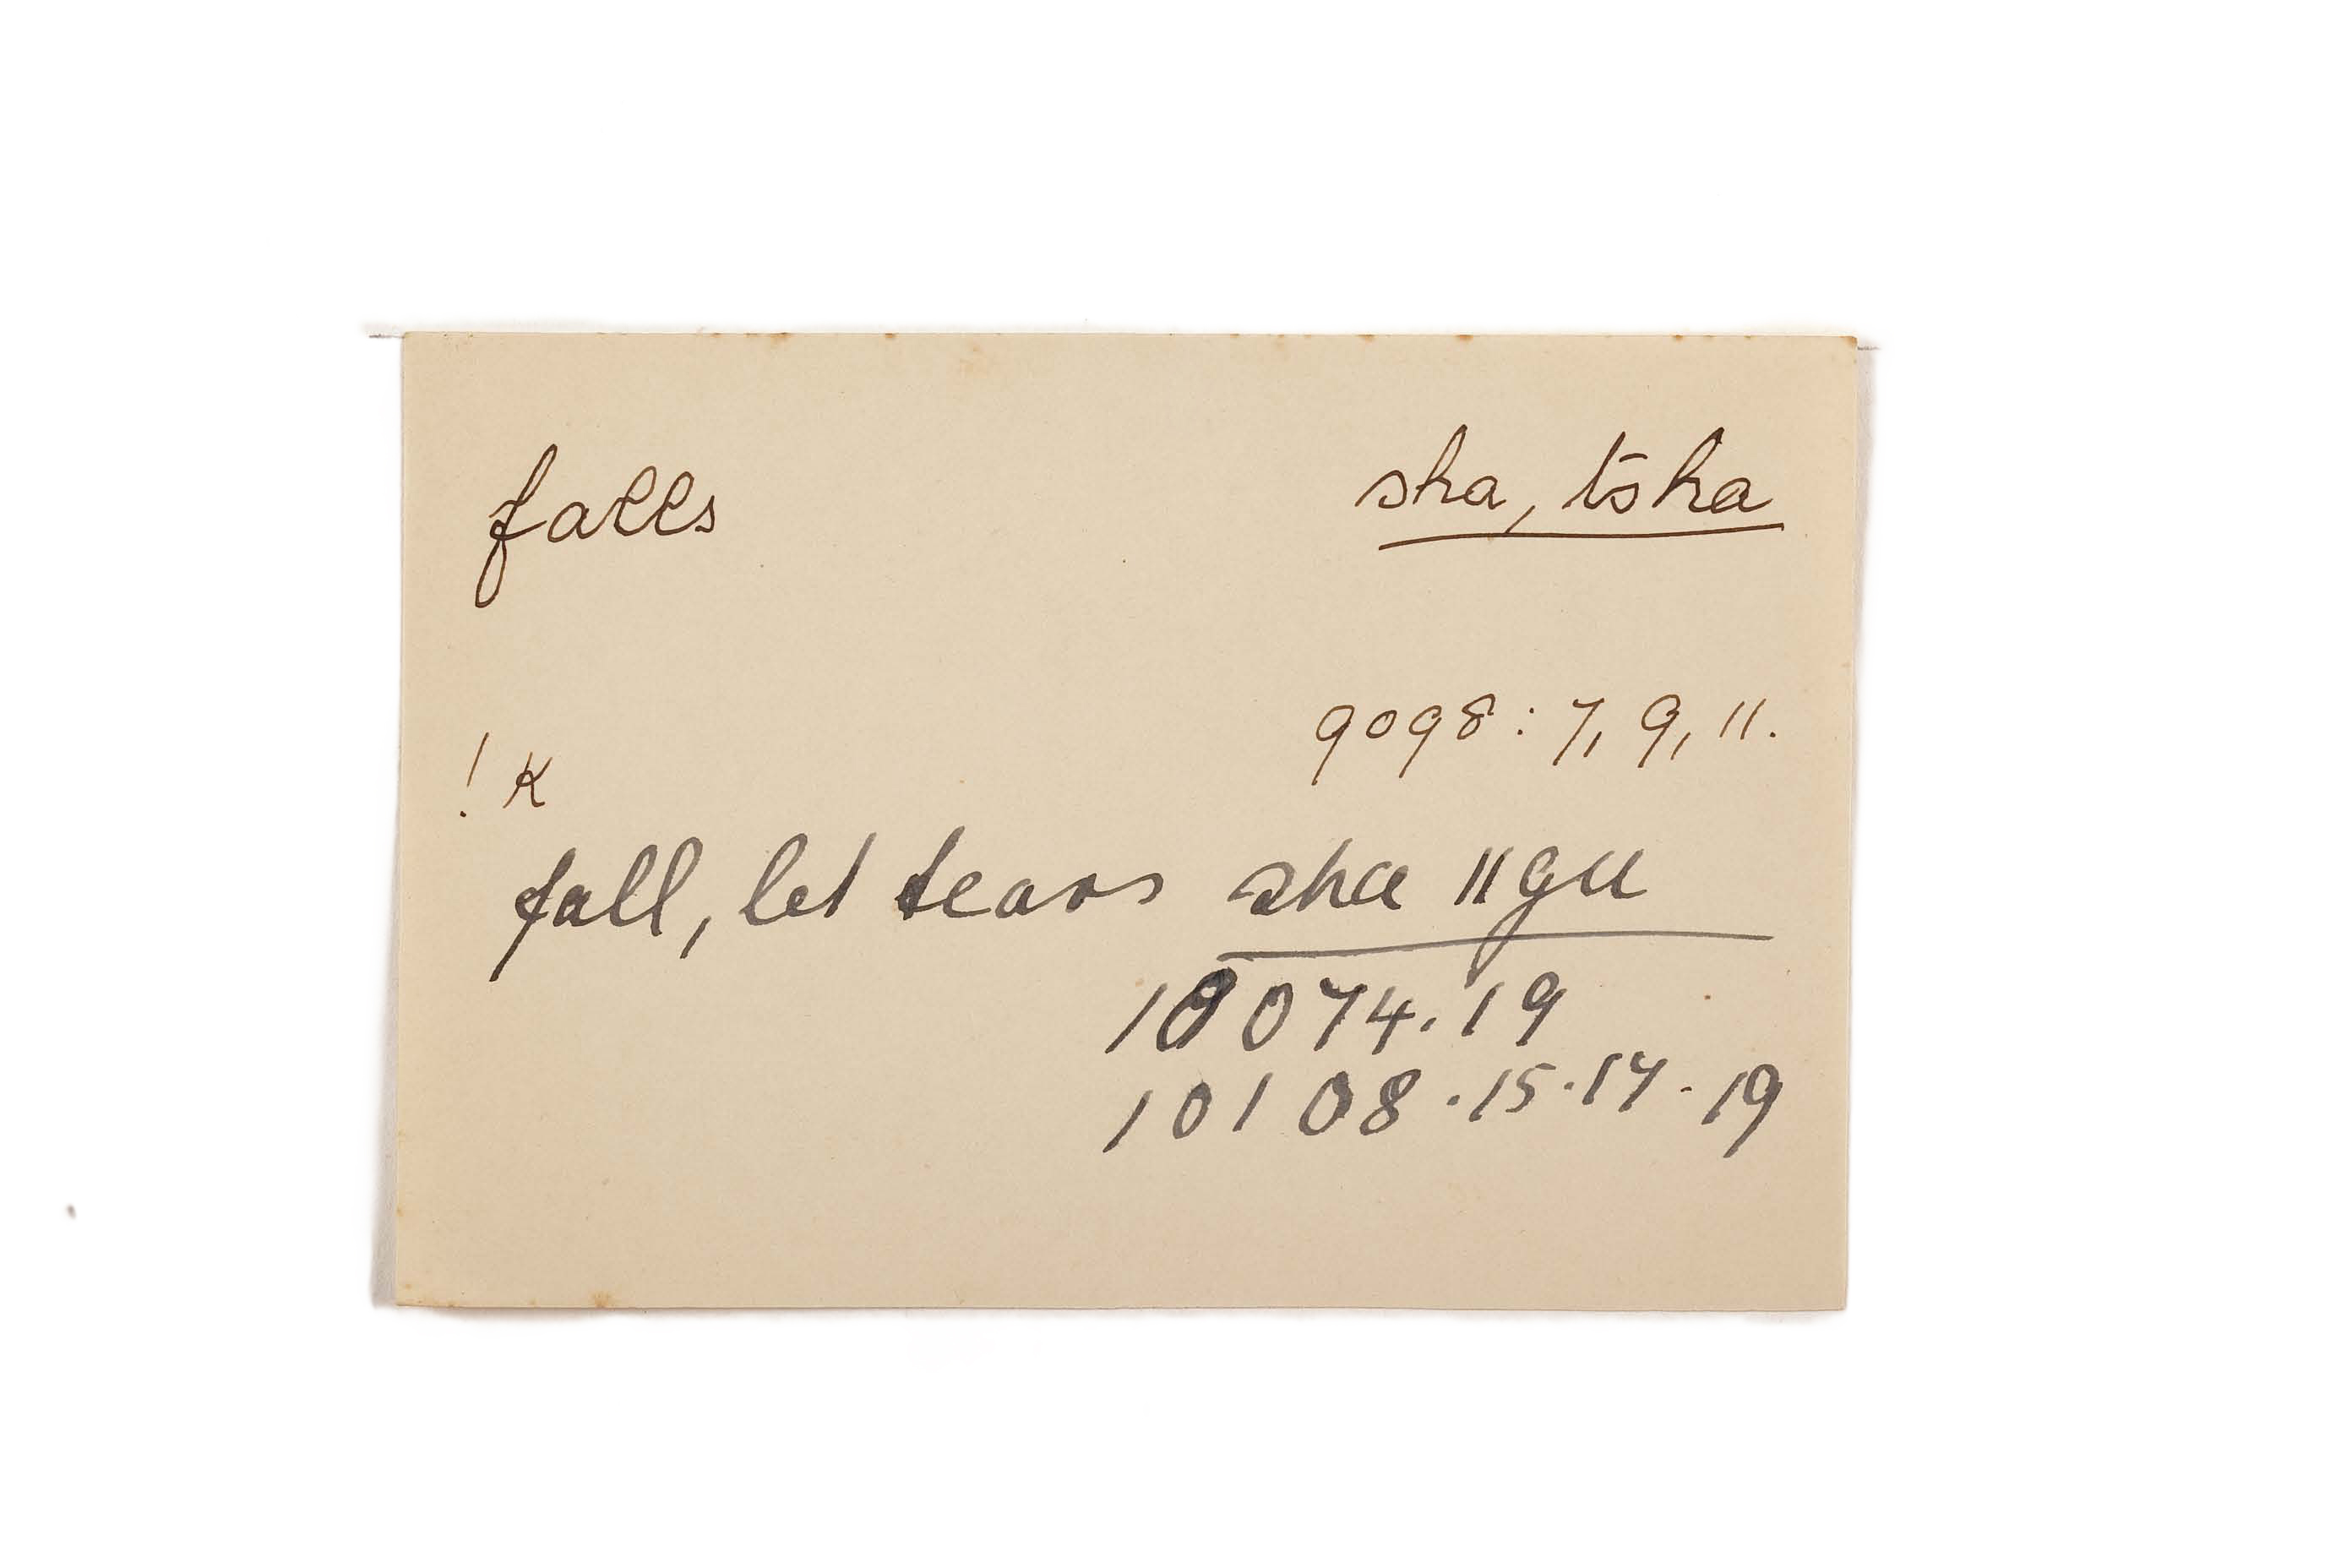 falls sha, tsha
9098 : 7, 9, 11.
! K
fall, let tears sha ǁgu
10074.19
10108.15.17.19